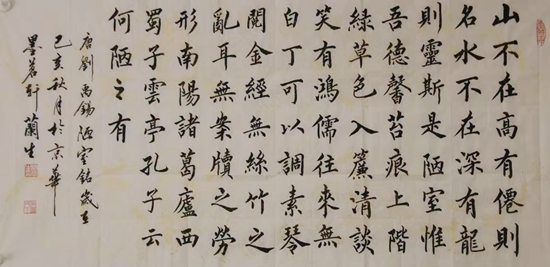 山不在高有僊則
名水不在深有龍
則靈斯是陋室惟
吾德馨苔痕上階
綠草色入簾清談
笑有鴻儒往來無
白丁可以調素琴
閱金經無絲竹之
亂耳無案牘之勞
形南陽諸葛廬西
蜀子雲亭孔子云
何陋之有
唐劉禹錫陋室銘歲在
己亥秋月於京華
墨茗軒蘭生